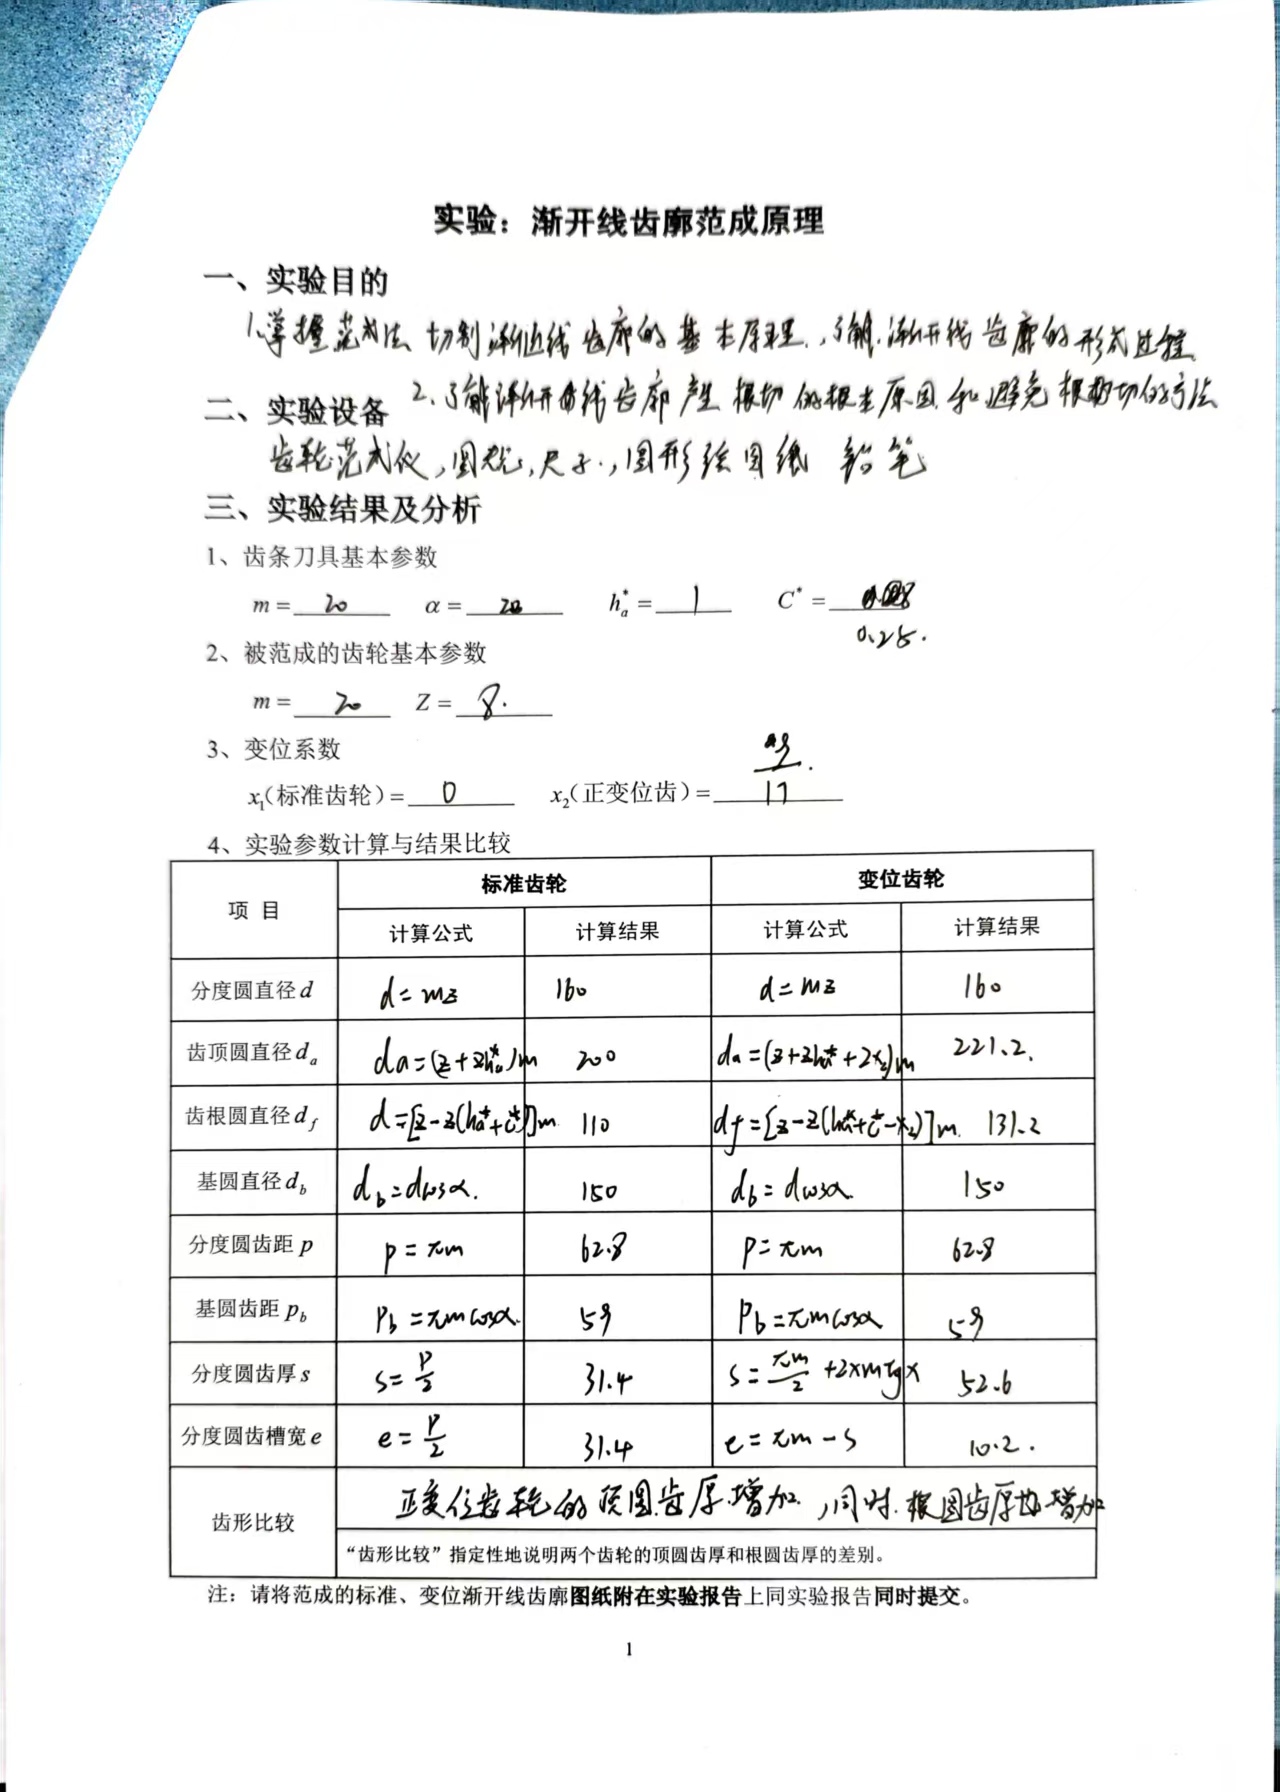 实验：渐开线齿廓范成原理
一、实验目的
1.掌握范成法 切制渐近线齿廓的基本原理，了解渐开线齿廓的形式过程
2、了解渐开曲线齿廓产生根切的根本原因和避免根切的方法
二、实验设备
齿轮范成仪，圆规，尺子，圆形绘图纸 铅笔
三、实验结果及分析
1、齿条刀具基本参数
m = 20 α = 20 h*a = 1 C* =
0.25.
2、被范成的齿轮基本参数
m = 20 Z = 8.
3、变位系数
x₁(标准齿轮) = 0 x₂(正变位齿) = 9/17
4、实验参数计算与结果比较
项 目 标准齿轮 变位齿轮
计算公式 计算结果 计算公式 计算结果
分度圆直径 d d = mz 160 d = mz 160
齿顶圆直径 da da=(z+2ha*)m 200 da=(z+2ha*+2x₂)m 221.2.
齿根圆直径 df d=[z-2(ha*+c*)]m 110 df=[z-2(ha*+c*-x₂)]m. 131.2
基圆直径 db db=dcosα. 150 db=dcosα. 150
分度圆齿距 p p=πm 62.8 p=πm 62.8
基圆齿距 pb Pb=πmcosα. 59 Pb=πmcosα 59
分度圆齿厚 s s=p/2 31.4 s=πm/2+2xmtgx 52.6
分度圆齿槽宽 e e=p/2 31.4 e=πm-s 10.2.
齿形比较 正变位齿轮的顶圆齿厚增加，同时.根圆齿厚也增加
“齿形比较”指定性地说明两个齿轮的顶圆齿厚和根圆齿厚的差别。
注：请将范成的标准、变位渐开线齿廓图纸附在实验报告上同实验报告同时提交。
1